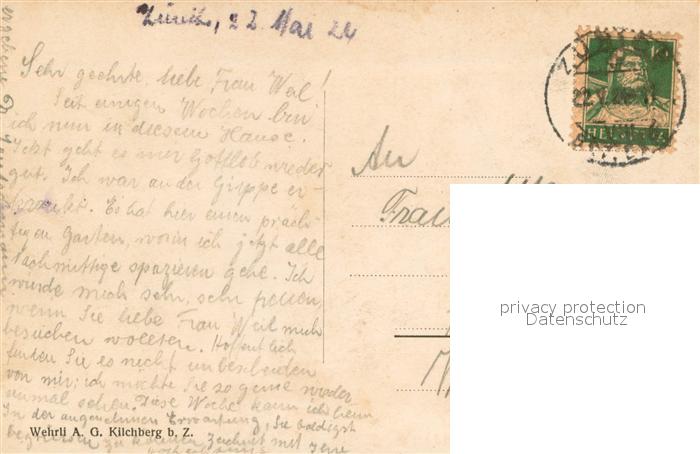 Zürich, 22 Mai 24
Sehr geehrte, liebe Frau Weil!
Seit einigen Wochen bin
ich nun in diesem Hause.
Jetzt geht es mir Gottlob wieder
gut. Ich war an Grippe er-
krankt. Es hat hier einen präch-
tigen Garten, worin ich jetzt alle
Nachmittage spazieren gehe. Ich
würde mich sehr, sehr freuen,
wenn Sie liebe Frau Weil mich
besuchen wollten. Hoffentlich
finden Sie es nicht unbescheiden
von mir; ich möchte Sie so gerne wieder
einmal sehen. Diese Woche kann ich
In der angenehmen Erwartung, Sie baldigst
begrüssen zu können zeichnet mit
Wehrli A. G. Kilchberg b. Z.
An
Frau
10
HELVETIA
privacy protection
Datenschutz